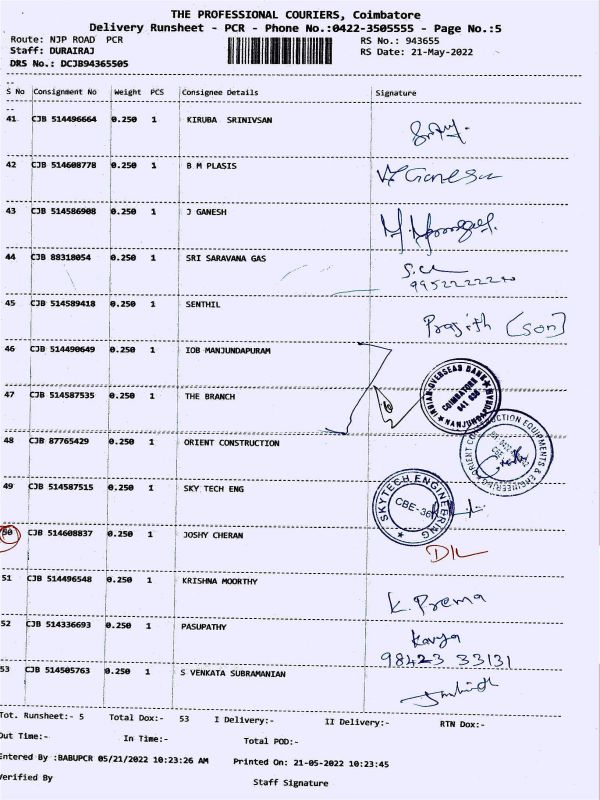 THE PROFESSIONAL COURIERS, Coimbatore
Delivery Runsheet - PCR - Phone No.:0422-3505555 - Page No.:5
Route: NJP ROAD PCR RS No.: 943655
Staff: DURAIRAJ RS Date: 21-May-2022
DRS No.: DCJB94365505
S No Consignment No Weight PCS Consignee Details Signature
41 CJB 514496664 0.250 1 KIRUBA SRINIVSAN
42 CJB 514608778 0.250 1 B M PLASIS
Ganesan
43 CJB 514586908 0.250 1 J GANESH
44 CJB 88318054 0.250 1 SRI SARAVANA GAS
45 CJB 514589418 0.250 1 SENTHIL
Prasith (son)
46 CJB 514490649 0.250 1 IOB MANJUNDAPURAM
INDIAN OVERSEAS BANK
COIMBATORE
641 036
NANJUNDAPURAM
47 CJB 514587535 0.250 1 THE BRANCH
48 CJB 87765429 0.250 1 ORIENT CONSTRUCTION
ORIENT CONSTRUCTION EQUIPMENTS & ENGINEERING
49 CJB 514587515 0.250 1 SKY TECH ENG
SKYTECH ENGINEERING
CBE-36
50 CJB 514608837 0.250 1 JOSHY CHERAN
D/L
51 CJB 514496548 0.250 1 KRISHNA MOORTHY
K. Prema
52 CJB 514336693 0.250 1 PASUPATHY
Kavya
98423 33131
53 CJB 514505763 0.250 1 S VENKATA SUBRAMANIAN
Tot. Runsheet:- 5 Total Dox:- 53 I Delivery:- II Delivery:- RTN Dox:-
Out Time:- In Time:- Total POD:-
Entered By :BABUPCR 05/21/2022 10:23:26 AM Printed On: 21-05-2022 10:23:45
Verified By Staff Signature